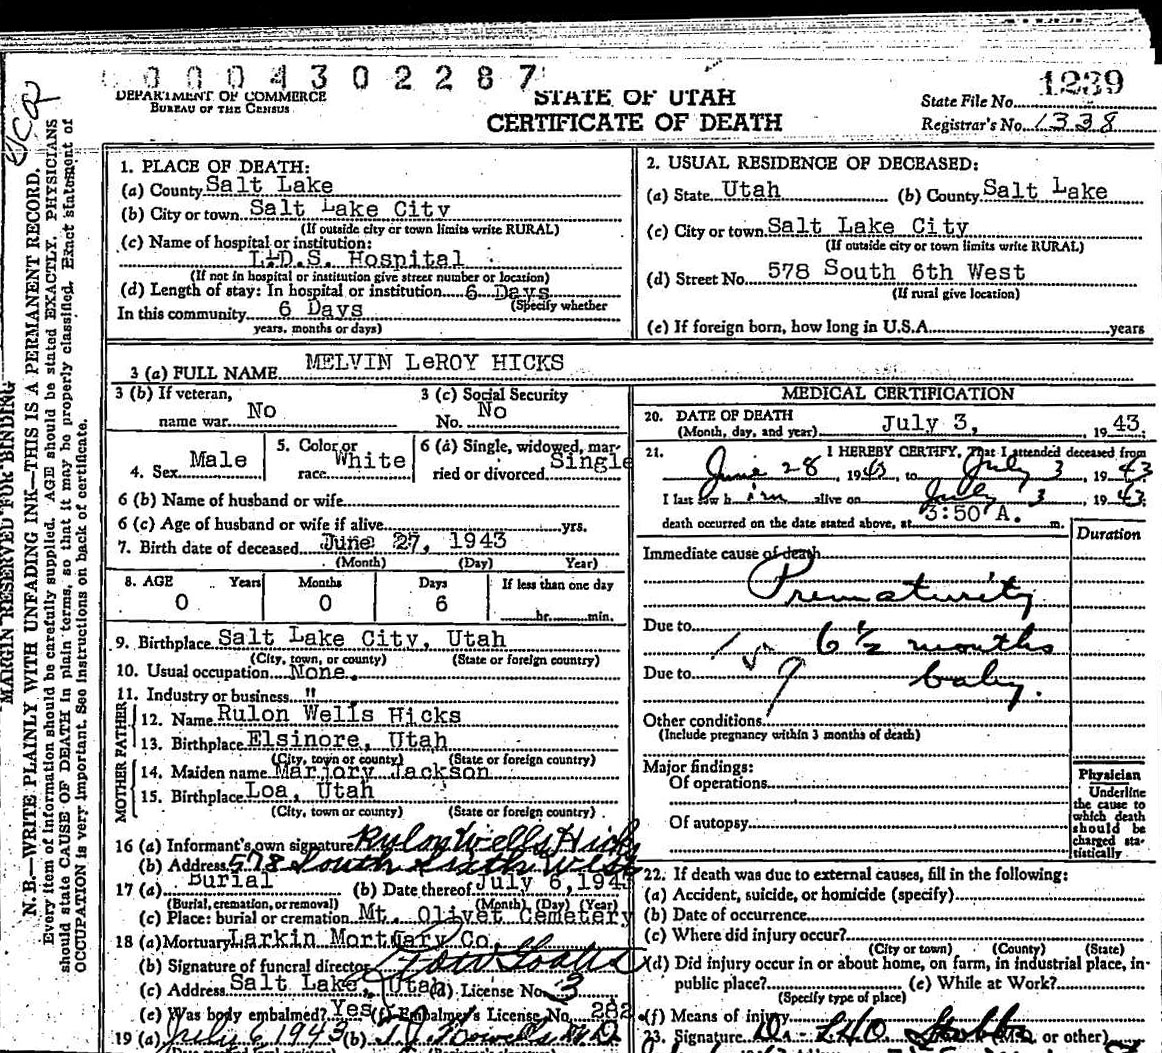 0004302287
1239
DEPARTMENT OF COMMERCE
BUREAU OF THE CENSUS
STATE OF UTAH
CERTIFICATE OF DEATH
State File No.
Registrar's No. 1338
MARGIN RESERVED FOR BINDING
N. B.—WRITE PLAINLY WITH UNFADING INK—THIS IS A PERMANENT RECORD.
Every item of information should be carefully supplied. AGE should be stated EXACTLY. PHYSICIANS
should state CAUSE OF DEATH in plain terms, so that it may be properly classified. Exact statement of
OCCUPATION is very important. See instructions on back of certificate.
1. PLACE OF DEATH:
(a) County Salt Lake
(b) City or town Salt Lake City
(If outside city or town limits write RURAL)
(c) Name of hospital or institution:
L.D.S. Hospital
(If not in hospital or institution give street number or location)
(d) Length of stay: In hospital or institution 6 Days
(Specify whether
In this community 6 Days
years, months or days)
2. USUAL RESIDENCE OF DECEASED:
(a) State Utah (b) County Salt Lake
(c) City or town Salt Lake City
(If outside city or town limits write RURAL)
(d) Street No. 578 South 6th West
(If rural give location)
(e) If foreign born, how long in U.S.A. years
3 (a) FULL NAME MELVIN LeROY HICKS
3 (b) If veteran,
name war No
3 (c) Social Security
No. No
4. Sex Male
5. Color or
race White
6 (a) Single, widowed, mar-
ried or divorced Single
6 (b) Name of husband or wife
6 (c) Age of husband or wife if alive yrs.
7. Birth date of deceased June 27, 1943
(Month) (Day) Year)
8. AGE Years Months Days If less than one day
0 0 6 hr. min.
9. Birthplace Salt Lake City, Utah
(City, town, or county) (State or foreign country)
10. Usual occupation None.
11. Industry or business "
FATHER
12. Name Rulon Wells Hicks
13. Birthplace Elsinore, Utah
(City, town or county) (State or foreign country)
MOTHER
14. Maiden name Marjory Jackson
15. Birthplace Loa, Utah
(City, town or county) (State or foreign country)
16 (a) Informant's own signature Rulon Wells Hicks
(b) Address 578 South Sixth West
17 (a) Burial (b) Date thereof July 6, 194
(Burial, cremation, or removal) (Month) (Day) (Year)
(c) Place: burial or cremation Mt. Olivet Cemetery
18 (a) Mortuary Larkin Mortuary Co.
(b) Signature of funeral director
(c) Address Salt Lake, Utah (d) License No. 3
(e) Was body embalmed? Yes (f) Embalmer's License No. 282
19 (a) July 6 1943 (b)
MEDICAL CERTIFICATION
20. DATE OF DEATH
(Month, day, and year) July 3, , 1943.
21. I HEREBY CERTIFY, That I attended deceased from
June 28 , 1943, to July 3 , 1943
I last saw him alive on July 3 , 1943
death occurred on the date stated above, at 3:50 A. m.
Duration
Immediate cause of death
Prematurity
Due to 6 1/2 months
Due to baby.
159
Other conditions
(Include pregnancy within 3 months of death)
Major findings:
Of operations
Of autopsy
Physician
Underline
the cause to
which death
should be
charged sta-
tistically
22. If death was due to external causes, fill in the following:
(a) Accident, suicide, or homicide (specify)
(b) Date of occurrence
(c) Where did injury occur?
(City or town) (County) (State)
(d) Did injury occur in or about home, on farm, in industrial place, in-
public place? (e) While at Work?
(Specify type of place)
(f) Means of injury
23. Signature (M.D. or other)